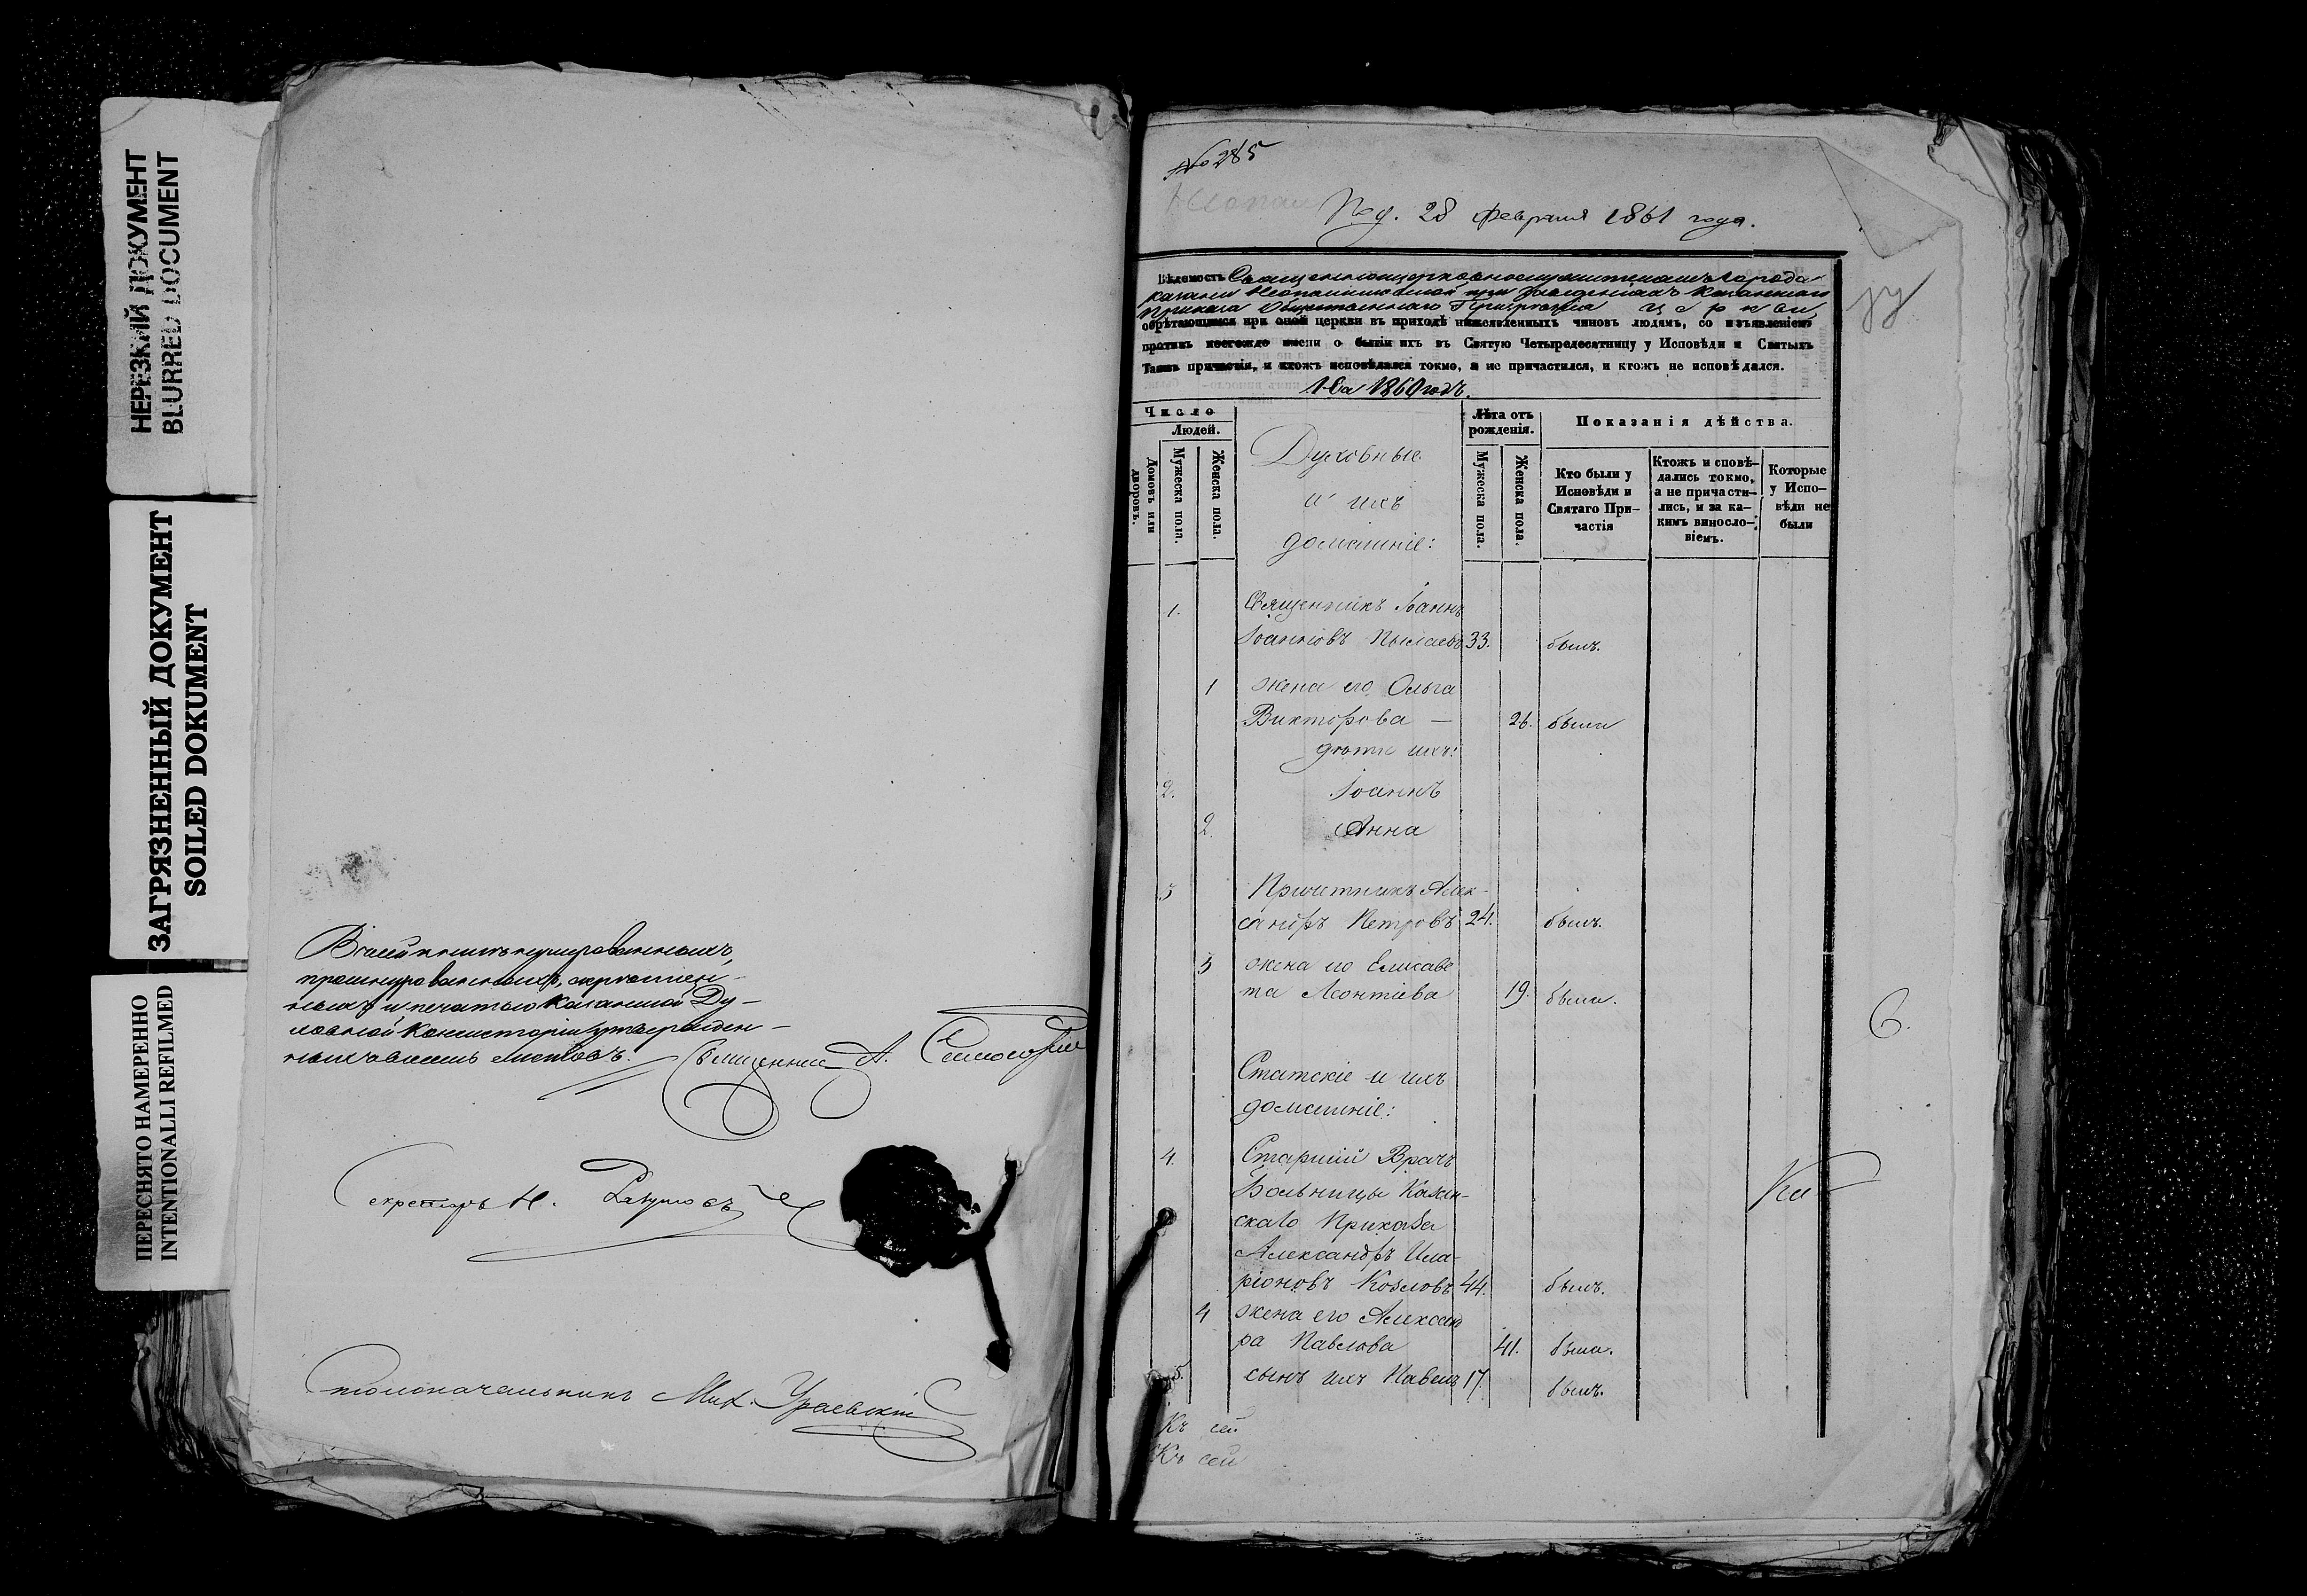 НЕРЕЗКИЙ ДОКУМЕНТ
BLURRED DOCUMENT
ЗАГРЯЗНЕННЫЙ ДОКУМЕНТ
SOILED DOKUMENT
ПЕРЕСНЯТО НАМЕРЕННО
INTENTIONALLI REFILMED
В сей книгѣ нумерованныхъ,
прошнурованныхъ, скрѣплен-
ныхъ и печатью Казанской Ду-
ховной Консисторіи утвержден-
ныхъ листовъ.
Священникъ А.
Секретарь Н. Разумовъ
Столоначальникъ Мих. Ураевскій
№ 285
Под. 28 Февраля 1861 года.
Вѣдомость Священноцерковнослужителямъ города
Казани при заведеніяхъ Казанскаго
Приказа Общественнаго Призрѣнія церкви,
обрѣтающимся при оной церкви въ приходѣ нижеявленныхъ чиновъ людямъ, со изъявленіемъ
противъ коегождо имени о бытіи ихъ въ Святую Четыредесятницу у Исповѣди и Святыхъ
Таинъ причастія, и ктожъ исповѣдался токмо, а не причастился, и ктожъ не исповѣдался.
На 1860 годъ.
Число
Людей.
Домовъ или дворовъ.
Мужеска пола.
Женска пола.
Духовные
и ихъ
домашніе:
Лѣта отъ рожденія.
Мужеска пола.
Женска пола.
Показанія дѣйства.
Кто были у Исповѣди и Святаго Причастія
Ктожъ исповѣ-
дались токмо,
а не причасти-
лись, и за ка-
кимъ виносло-
віемъ.
Которые
у Испо-
вѣди не
были
1. Священникъ Іоаннъ
Іоанновъ Пылаевъ 33. былъ.
1 жена его Ольга
Викторова — 26. была
дѣти ихъ:
2. Іоаннъ
2. Анна
3 Причетникъ Алек-
сандръ Петровъ 24. былъ.
3 жена его Елисаве
та Леонтіева 19. была.
Статскіе и ихъ
домашніе:
4. Старшій Врачъ
Больницы Казан-
скаго Приказа
Александръ Ила-
ріоновъ Козловъ 44. былъ.
4 жена его Александ
ра Павлова 41. была.
5. сынъ ихъ Павелъ 17. былъ.
Къ сей
Къ сей
6.